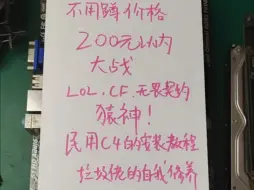 不用蹲价格
200元以内
大战
LOL.CF.无畏契约
猿神！
民用C4的安装教程
垃圾佬的自我修养